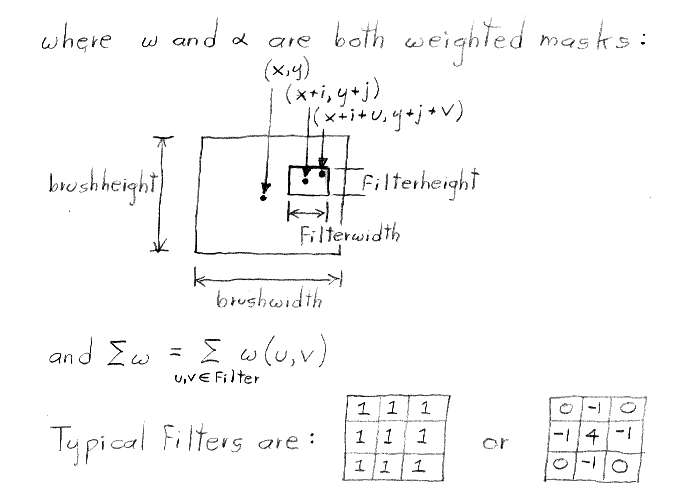 where ω and α are both weighted masks:
(x,y)
(x+i, y+j)
(x+i+u, y+j+v)
brushheight
Filterheight
Filterwidth
brushwidth
and Σω = Σ ω(u,v)
u,v ∈ Filter
Typical Filters are: or
1 1 1
1 1 1
1 1 1
0 -1 0
-1 4 -1
0 -1 0